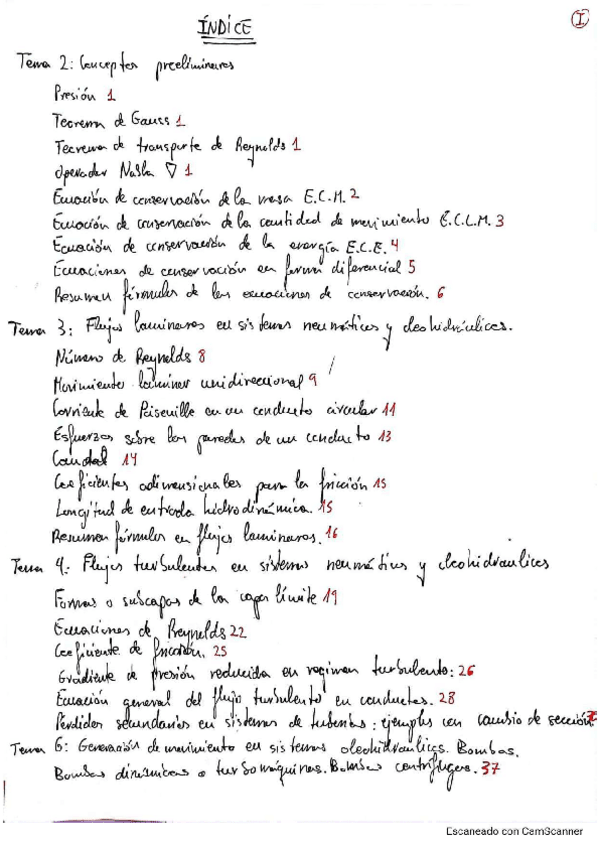 ÍNDICE
I
Tema 2: Conceptos preeliminares
Presión 1
Teorema de Gauss 1
Teorema de transporte de Reynolds 1
Operador Nabla ∇ 1
Ecuación de conservación de la masa E.C.M. 2
Ecuación de conservación de la cantidad de movimiento E.C.L.M. 3
Ecuación de conservación de la energía E.C.E. 4
Ecuaciones de conservación en forma diferencial 5
Resumen fórmulas de las ecuaciones de conservación. 6
Tema 3: Flujos laminares en sistemas neumáticos y oleohidráulicos.
Número de Reynolds 8
Movimiento laminar unidireccional 9
Corriente de Poiseuille en un conducto circular 11
Esfuerzos sobre las paredes de un conducto 13
Caudal 14
Coeficientes adimensionales para la fricción 15
Longitud de entrada hidrodinámica. 15
Resumen fórmulas en flujos laminares. 16
Tema 4: Flujos turbulentos en sistemas neumáticos y oleohidraulicos
Formas o subcapas de la capa límite 19
Ecuaciones de Reynolds 22
Coeficiente de fricción. 25
Gradiente de presión reducida en regimen turbulento: 26
Ecuación general del flujo turbulento en conductos. 28
Pérdidas secundarias en sistemas de tuberías: ejemplos con cambio de sección
Tema 6: Generación de movimiento en sistemas oleohidraulicos. Bombas.
Bombas dinámicas o turbomáquinas. Bombas centrífugas. 37
Escaneado con CamScanner